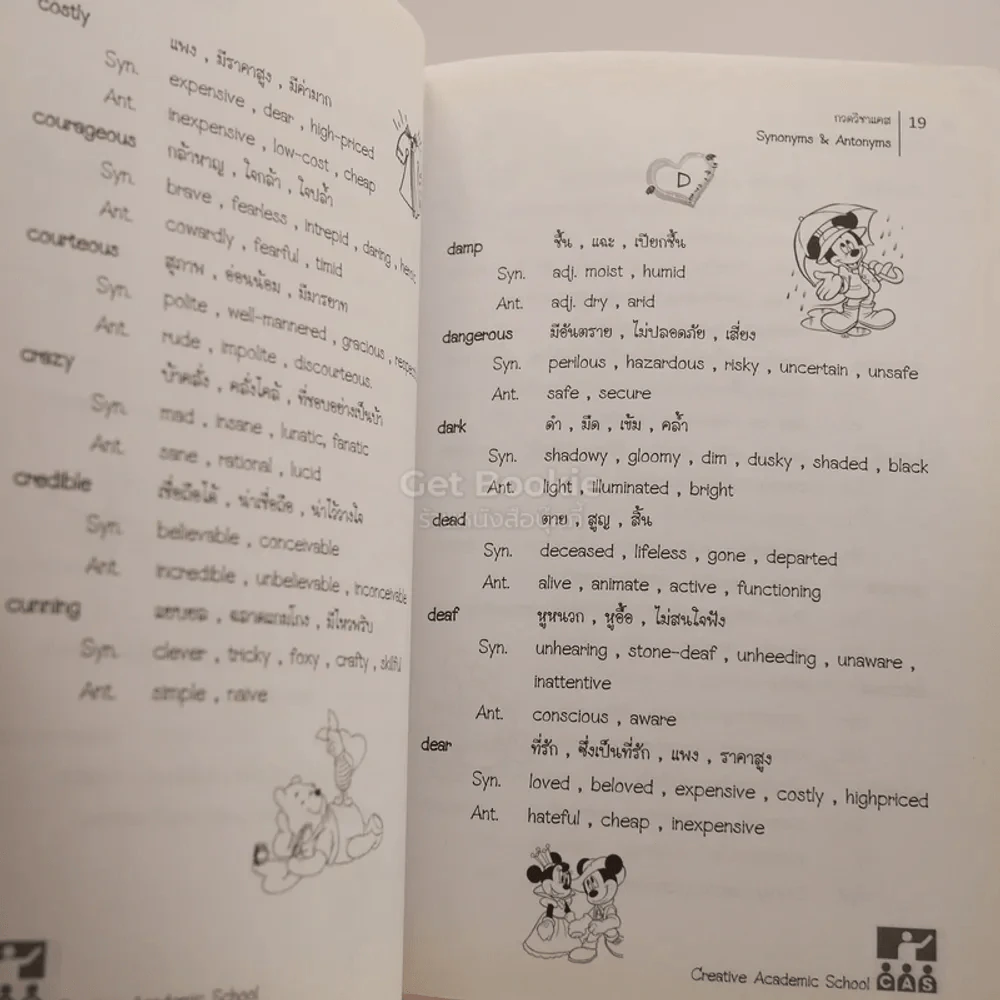 costly
แพง , มีราคาสูง , มีค่ามาก
Syn. expensive , dear , high-priced
Ant. inexpensive , low-cost , cheap
courageous กล้าหาญ , ใจกล้า , ใจปล้ำ
Syn. brave , fearless , intrepid , daring , heroic
Ant. cowardly , fearful , timid
courteous สุภาพ , อ่อนน้อม , มีมารยาท
Syn. polite , well-mannered , gracious ,
Ant. rude , impolite , discourteous.
crazy บ้าคลั่ง , คลั่งไคล้ , ที่ชอบอย่างเป็นบ้า
Syn. mad , insane , lunatic, fanatic
Ant. sane , rational , lucid
credible เชื่อถือได้ , น่าเชื่อถือ , น่าไว้วางใจ
Syn. believable , conceivable
Ant. incredible , unbelievable , inconceivable
cunning แยบยล , ฉลาดแกมโกง , มีไหวพริบ
Syn. clever , tricky , foxy , crafty , skilful
Ant. simple , naive
Creative Academic School
กวดวิชาแคส 19
Synonyms & Antonyms
D
damp ชื้น , แฉะ , เปียกชื้น
Syn. adj. moist , humid
Ant. adj. dry , arid
dangerous มีอันตราย , ไม่ปลอดภัย , เสี่ยง
Syn. perilous , hazardous , risky , uncertain , unsafe
Ant. safe , secure
dark ดำ , มืด , เข้ม , คล้ำ
Syn. shadowy , gloomy , dim , dusky , shaded , black
Ant. light , illuminated , bright
dead ตาย , สูญ , สิ้น
Syn. deceased , lifeless , gone , departed
Ant. alive , animate , active , functioning
deaf หูหนวก , หูอื้อ , ไม่สนใจฟัง
Syn. unhearing , stone-deaf , unheeding , unaware ,
inattentive
Ant. conscious , aware
dear ที่รัก , ซึ่งเป็นที่รัก , แพง , ราคาสูง
Syn. loved , beloved , expensive , costly , highpriced
Ant. hateful , cheap , inexpensive
Creative Academic School CAS
Get Bookie